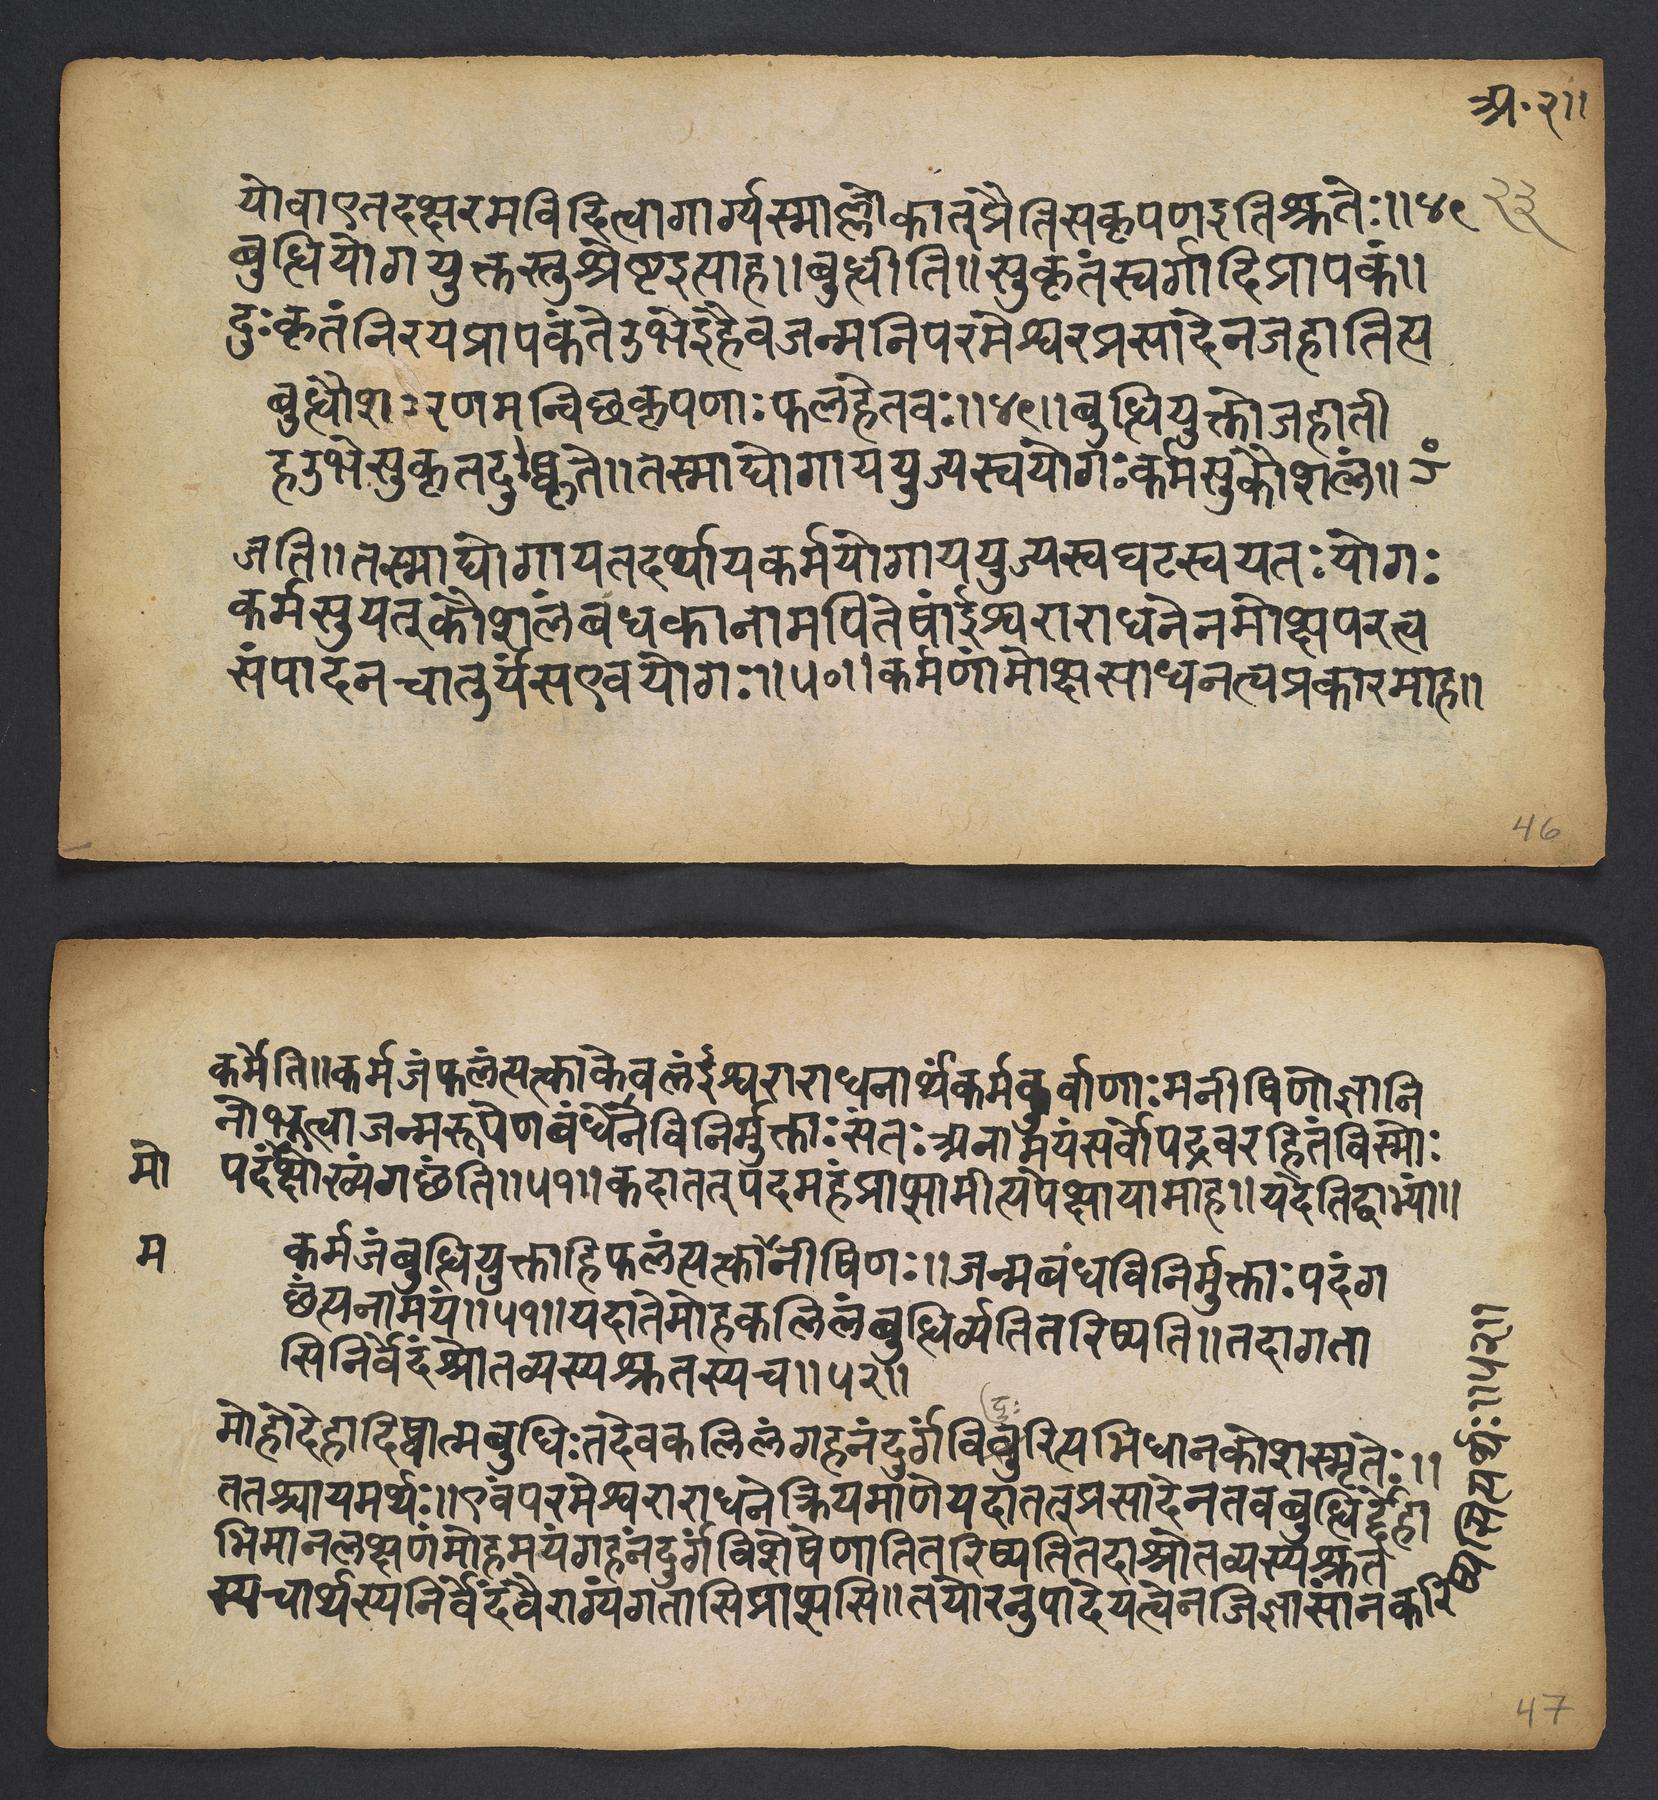 अ॰२।।
योवाएतदक्षरमविदित्वागार्ग्यस्माल्लोकात्प्रैतिसकृपणइतिश्रुतेः॥४९
२३
बुद्धियोगयुक्तस्तुश्रेष्टइत्याह॥बुद्धीति॥सुकृतंस्वर्गादिप्रापकं॥
दुःकृतंनिरयप्रापकंतेउभेइहैवजन्मनिपरमेश्वरप्रसादेनजहातित्य
बुद्धौशरणमन्विछकृपणाःफलहेतवः॥४९॥बुद्धियुक्तोजहाती
हउभेसुकृतदुष्कृते॥तस्माद्योगाययुज्यस्वयोगःकर्मसुकौशलं॥
जति॥तस्माद्योगायतदर्थायकर्मयोगाययुज्यस्वघटस्वयतःयोगः
कर्मसुयत्कौशलंबधकानामपितेषांईश्वराराधनेनमोक्षपरत्व
संपादनचातुर्यंसएवयोगः॥५०॥कर्मणांमोक्षसाधनत्वप्रकारमाह॥
46
कर्मेति॥कर्मजंफलंत्यत्काकेवलंईश्वराराधनार्थंकर्मकुर्वाणाःमनीषिणोज्ञानि
नोभूत्वाजन्मरूपेणबंधेनविनिर्मुक्ताःसंतःअनामयंसर्वोपद्रवरहितंविस्मोः
मो
पदंक्षाख्यंगछंति॥५१॥कदातत्पदमहंप्राप्सामीत्यपेक्षायामाह॥यदेतिद्वाभ्यां॥
म
कर्मजंबुद्धियुक्ताहिफलंत्यत्कानीषिणः॥जन्मबंधविनिर्मुक्ताःपदंग
छंत्यनामयं॥५१॥यदातेमोहकलिलंबुद्धिर्व्यतितरिष्यति॥तदागता
सिनिर्वेदंश्रोतव्यस्यश्रुतस्यच॥५२॥
मोहोदेहादिष्वात्मबुधिःतदेवकलिलंगहनंदुर्गंविबुरित्यभिधानकोशस्मृतेः॥
दुः
ततश्चायमर्थः॥एवंपरमेश्वराराधनेक्रियमाणेयदातत्प्रसादेनतवबुद्धिर्देहा
भिमानलक्षणंमोहमयंगहनंदुर्गंविशेषेणातितरिष्यतितदाश्रोतव्यस्यश्रुत
स्यचार्थस्यनिर्वेदंवैराग्यंगतासिप्राप्स्यसि॥तयोरनुपादेयत्वेनजिज्ञासांनकरि
ष्यसीत्यर्थः॥५२॥
47